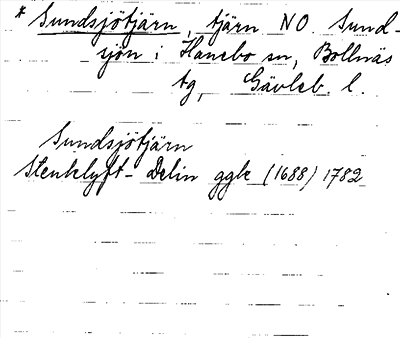 * Sundsjötjärn, tjärn NO. Sund-
sjön i Hanebo sn, Bollnäs
tg, Gävleb. l.
Sundsjötjärn
Stenklyft- Delin ggbr (1688) 1782